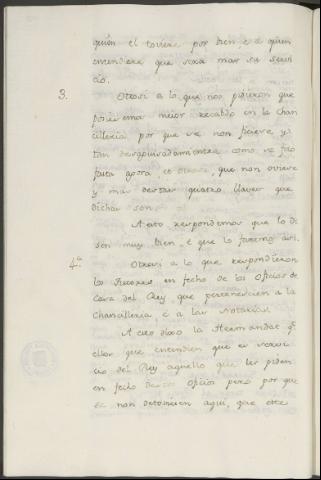 quien el toviere por bien e a quien
entendiere que sera mas su servi
cio.
3. Otrosi a lo que nos pidieron que
posieremos meior recabdo en la Chan
cilleria por que se non ficiese y
tan desaguisadamientre como se fizo
fata agora, e que non oviere
y mas destas quatro llaves que
dichas son
A esto respondemos que lo di
sen muy bien, e que lo faremos asi.
4.a Otrosi a lo que respondieron
los en fecho de los Oficios de
Casa del Rey que pertenescien a la
Chancilleria, e a las Notarias.
A esto dixo la Hermandat q.e
ellos que entendien que es servi
cio del Rey aquello que les piden
en fecho de los oficios pero por que
se non detoviesen aqui, que esto